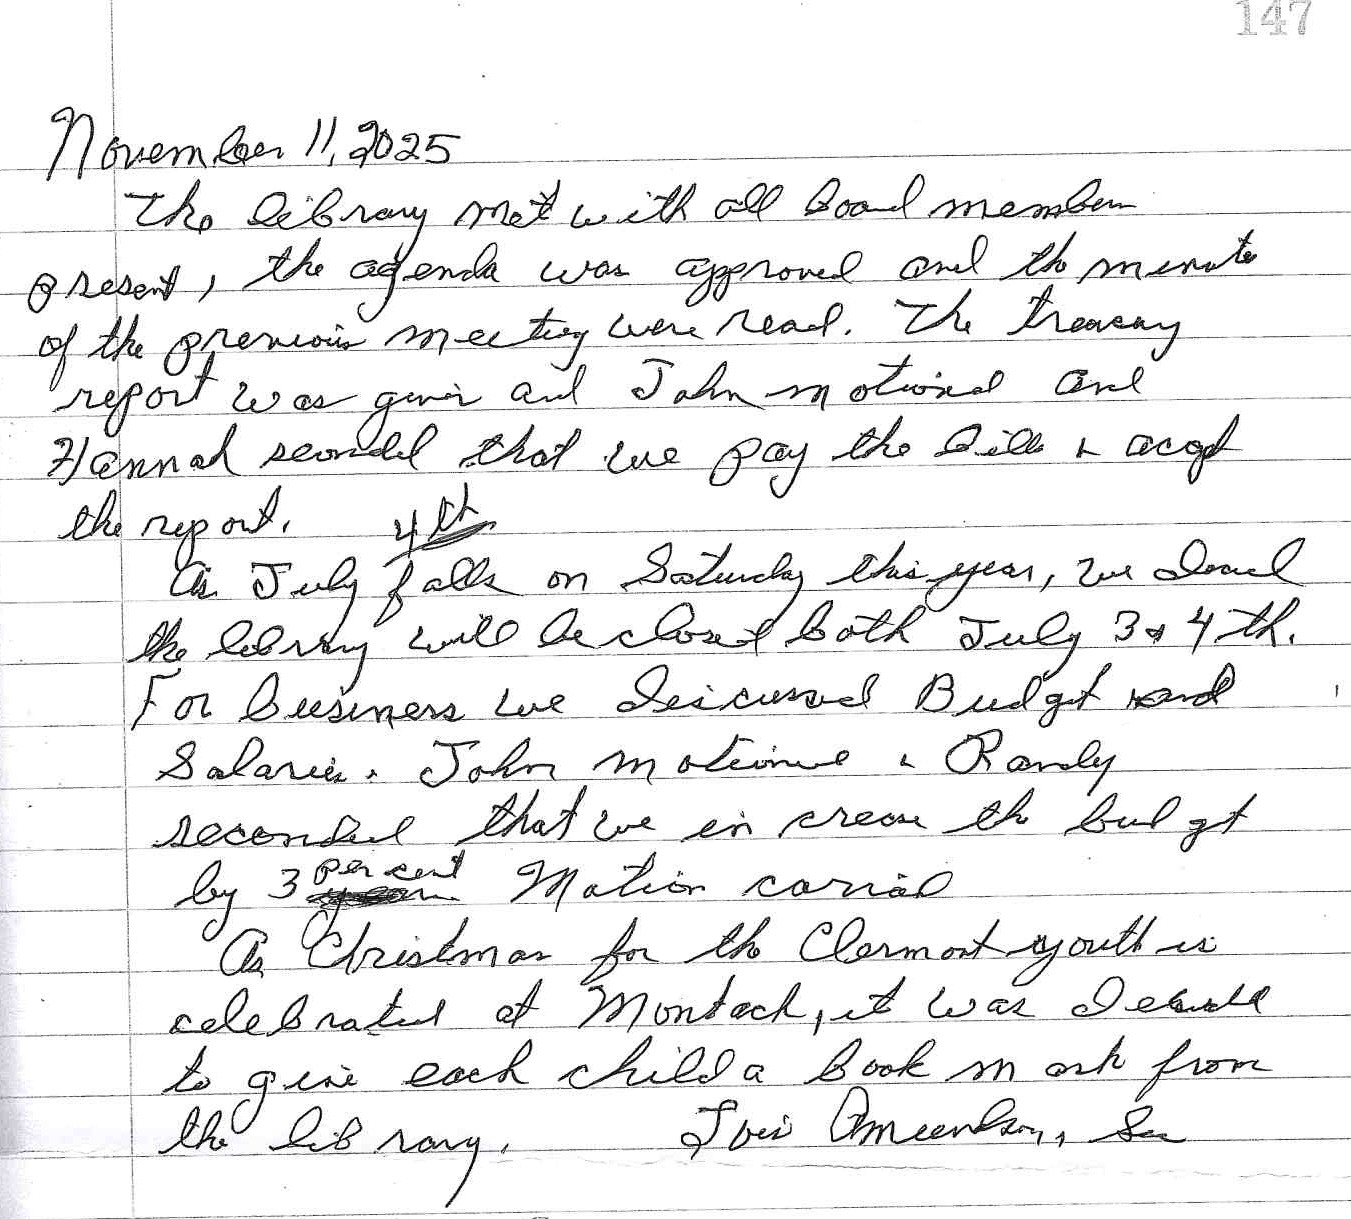 147
November 11, 2025
The library met with all board members
present, the agenda was approved and the minutes
of the previous meeting were read. The treasury
report was given and John motioned and
Hannah seconded that we pay the bills & accept
the report.
4th
As July falls on Saturday this year, we
the library will be closed both July 3 & 4th.
For business we discussed Budget and
Salaries. John motioned & Randy
seconded that we increase the budget
by 3 percent Motion carried
As Christmas for the Clermont youth is
celebrated at, it was decided
to give each child a book mark from
the library. Lois Amundson, Sec